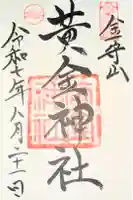 金華山
黄金神社
令和七年八月二十一日